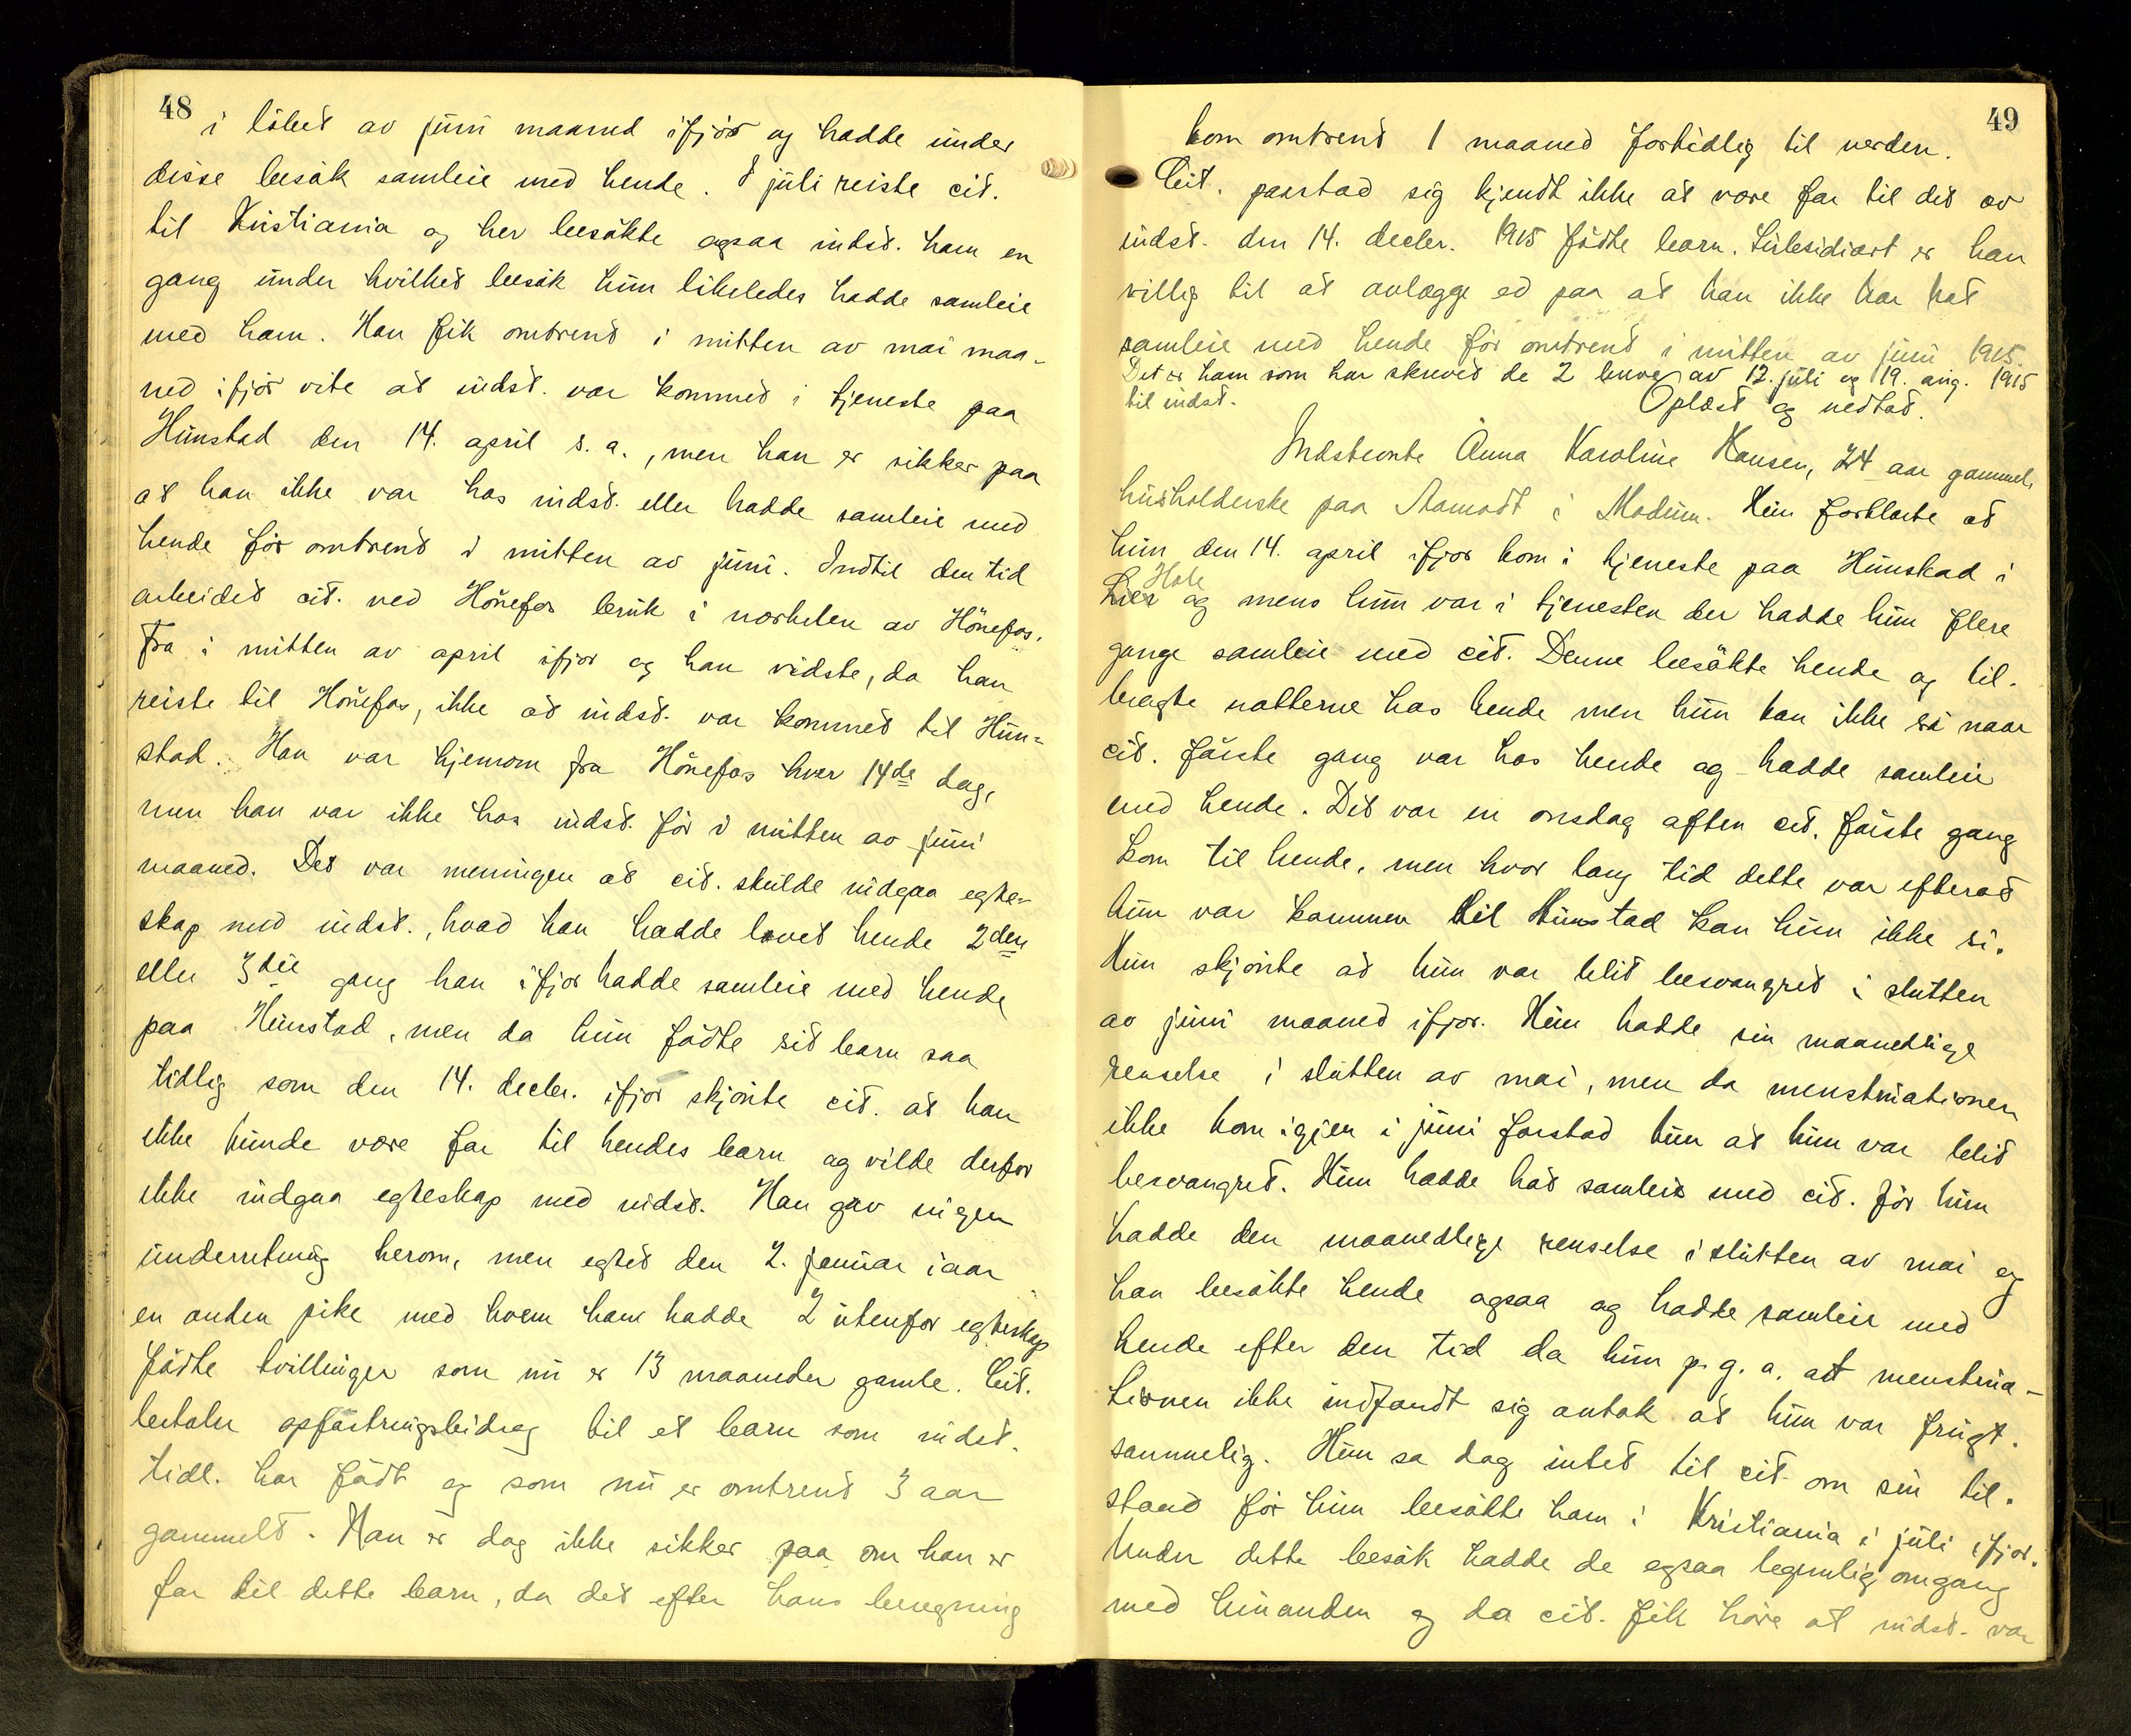 48
i löbet av juni maaned ifjor og hadde under
disse besök samleie med hende. I juli reiste cit.
til Kristiania og her besökte ogsaa indst. ham en
gang under hvilket besök hun likeledes hadde samleie
med ham. Han fik omtrent i mitten av mai maa-
ned ifjor vite at indst. var kommet i tjeneste paa
Hunstad den 14. april s. a., men han er sikker paa
at han ikke var hos indst. eller hadde samleie med
hende för omtrent i mitten av juni. Indtil den tid
arbeidet cit. ved Hönefos bruk i nærheten av Hönefos.
Fra i mitten av april ifjor og han vidste, da han
reiste til Hönefos, ikke at indst. var kommet til Hun-
stad. Han var hjemom fra Hönefos hver 14de dag,
men han var ikke hos indst. för i mitten av juni
maaned. Det var meningen at cit. skulde indgaa egte-
skap med indst., hvad han hadde lovet hende 2den
eller 3die gang han ifjor hadde samleie med hende
paa Hunstad, men da hun födte sit barn saa
tidlig som den 14. decbr. ifjor skjönte cit. at han
ikke kunde være far til hendes barn og vilde derfor
ikke indgaa egteskap med indst. Han gav ingen
underretning herom, men egtet den 2. januar iaar
en anden pike med hvem han hadde 2 utenfor egteskap
födte tvillinger som nu er 13 maaneder gamle. Cit.
betaler opfostringsbidrag til et barn som indst.
tidl. har födt og som nu er omtrent 3 aar
gammelt. Han er dog ikke sikker paa om han er
far til dette barn, da det efter hans beregning
49
kom omtrent 1 maaned fortidlig til verden.
Cit. paastod sig kjendt ikke at være far til det av
indst. den 14. decbr. 1915 födte barn. Subsidiært er han
villig til at avlægge ed paa at han ikke har hat
samleie med hende för omtrent i mitten av juni 1915.
Det er ham som har skrevet de 2 breve av 12. juli og 19. aug. 1915
til indst.
Oplæst og vedtat.
Indstevnte Anna Karoline Hansen, 24 aar gammel,
husholderske paa Aamodt i Modum. Hun forklarte at
hun den 14. april ifjor kom i tjeneste paa Hunstad i
Hole
Lier og mens hun var i tjenesten der hadde hun flere
gange samleie med cit. Denne besökte hende og til-
bragte nætterne hos hende men hun kan ikke si naar
cit. förste gang var hos hende og hadde samleie
med hende. Det var en onsdag aften cit. förste gang
kom til hende, men hvor lang tid dette var efterat
hun var kommen til Hunstad kan hun ikke si.
Hun skjönte at hun var blit besvangret i slutten
av juni maaned ifjor. Hun hadde sin maanedlige
renselse i slutten av mai, men da menstruationen
ikke kom igjen i juni forstod hun at hun var blit
besvangret. Hun hadde hat samleie med cit. för hun
hadde den maanedlige renselse i slutten av mai og
han besökte hende ogsaa og hadde samleie med
hende efter den tid da hun p. g. a. at menstrua-
tionen ikke indfandt sig antok at hun var frugt-
sommelig. Hun sa dog intet til cit. om sin til-
stand för hun besökte ham i Kristiania i juli ifjor.
Under dette besök hadde de ogsaa legemlig omgang
med hinanden og da cit. fik höre at indst. var